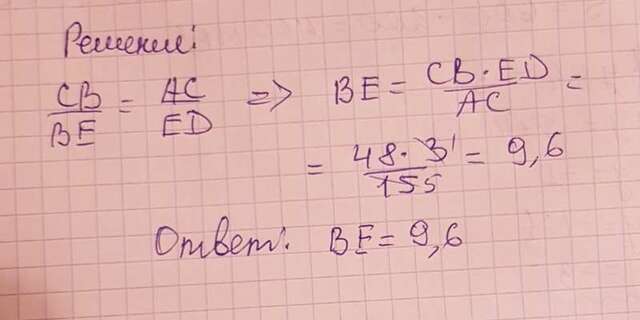 Решение:
CB/BE = AC/ED => BE = CB·ED/AC =
= 48·31/155 = 9,6
Ответ: BE = 9,6